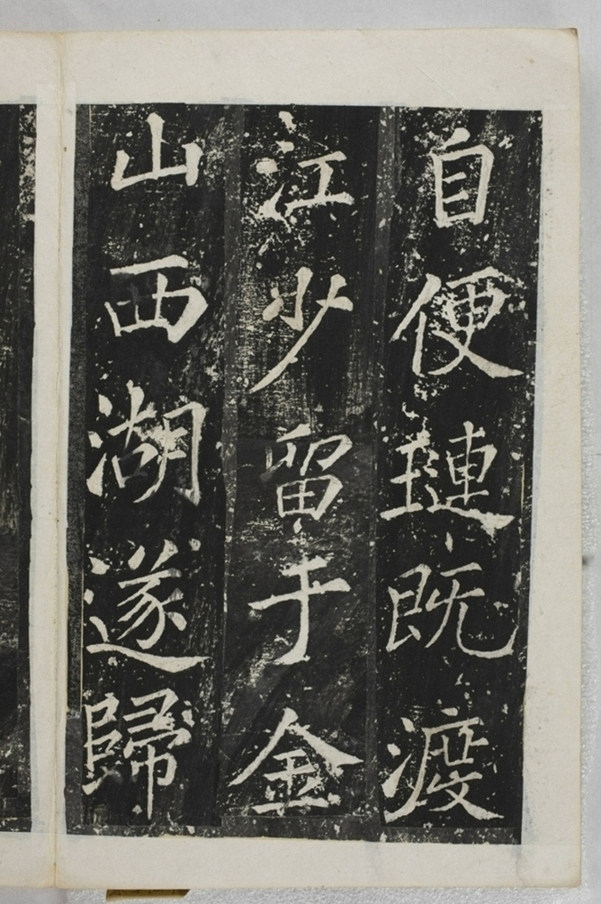 自便璉既渡
江少留于金
山西湖遂歸